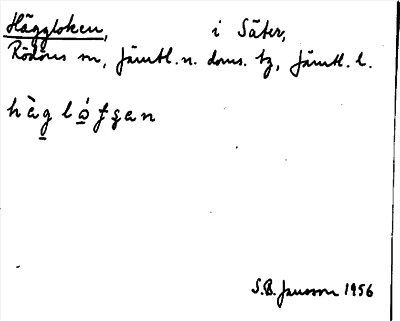 Häggloken, i Säter,
Rödöns sn, Jämtl. n. doms. tg, Jämtl. l.
hàg lótsen
S.B. Jansson 1956